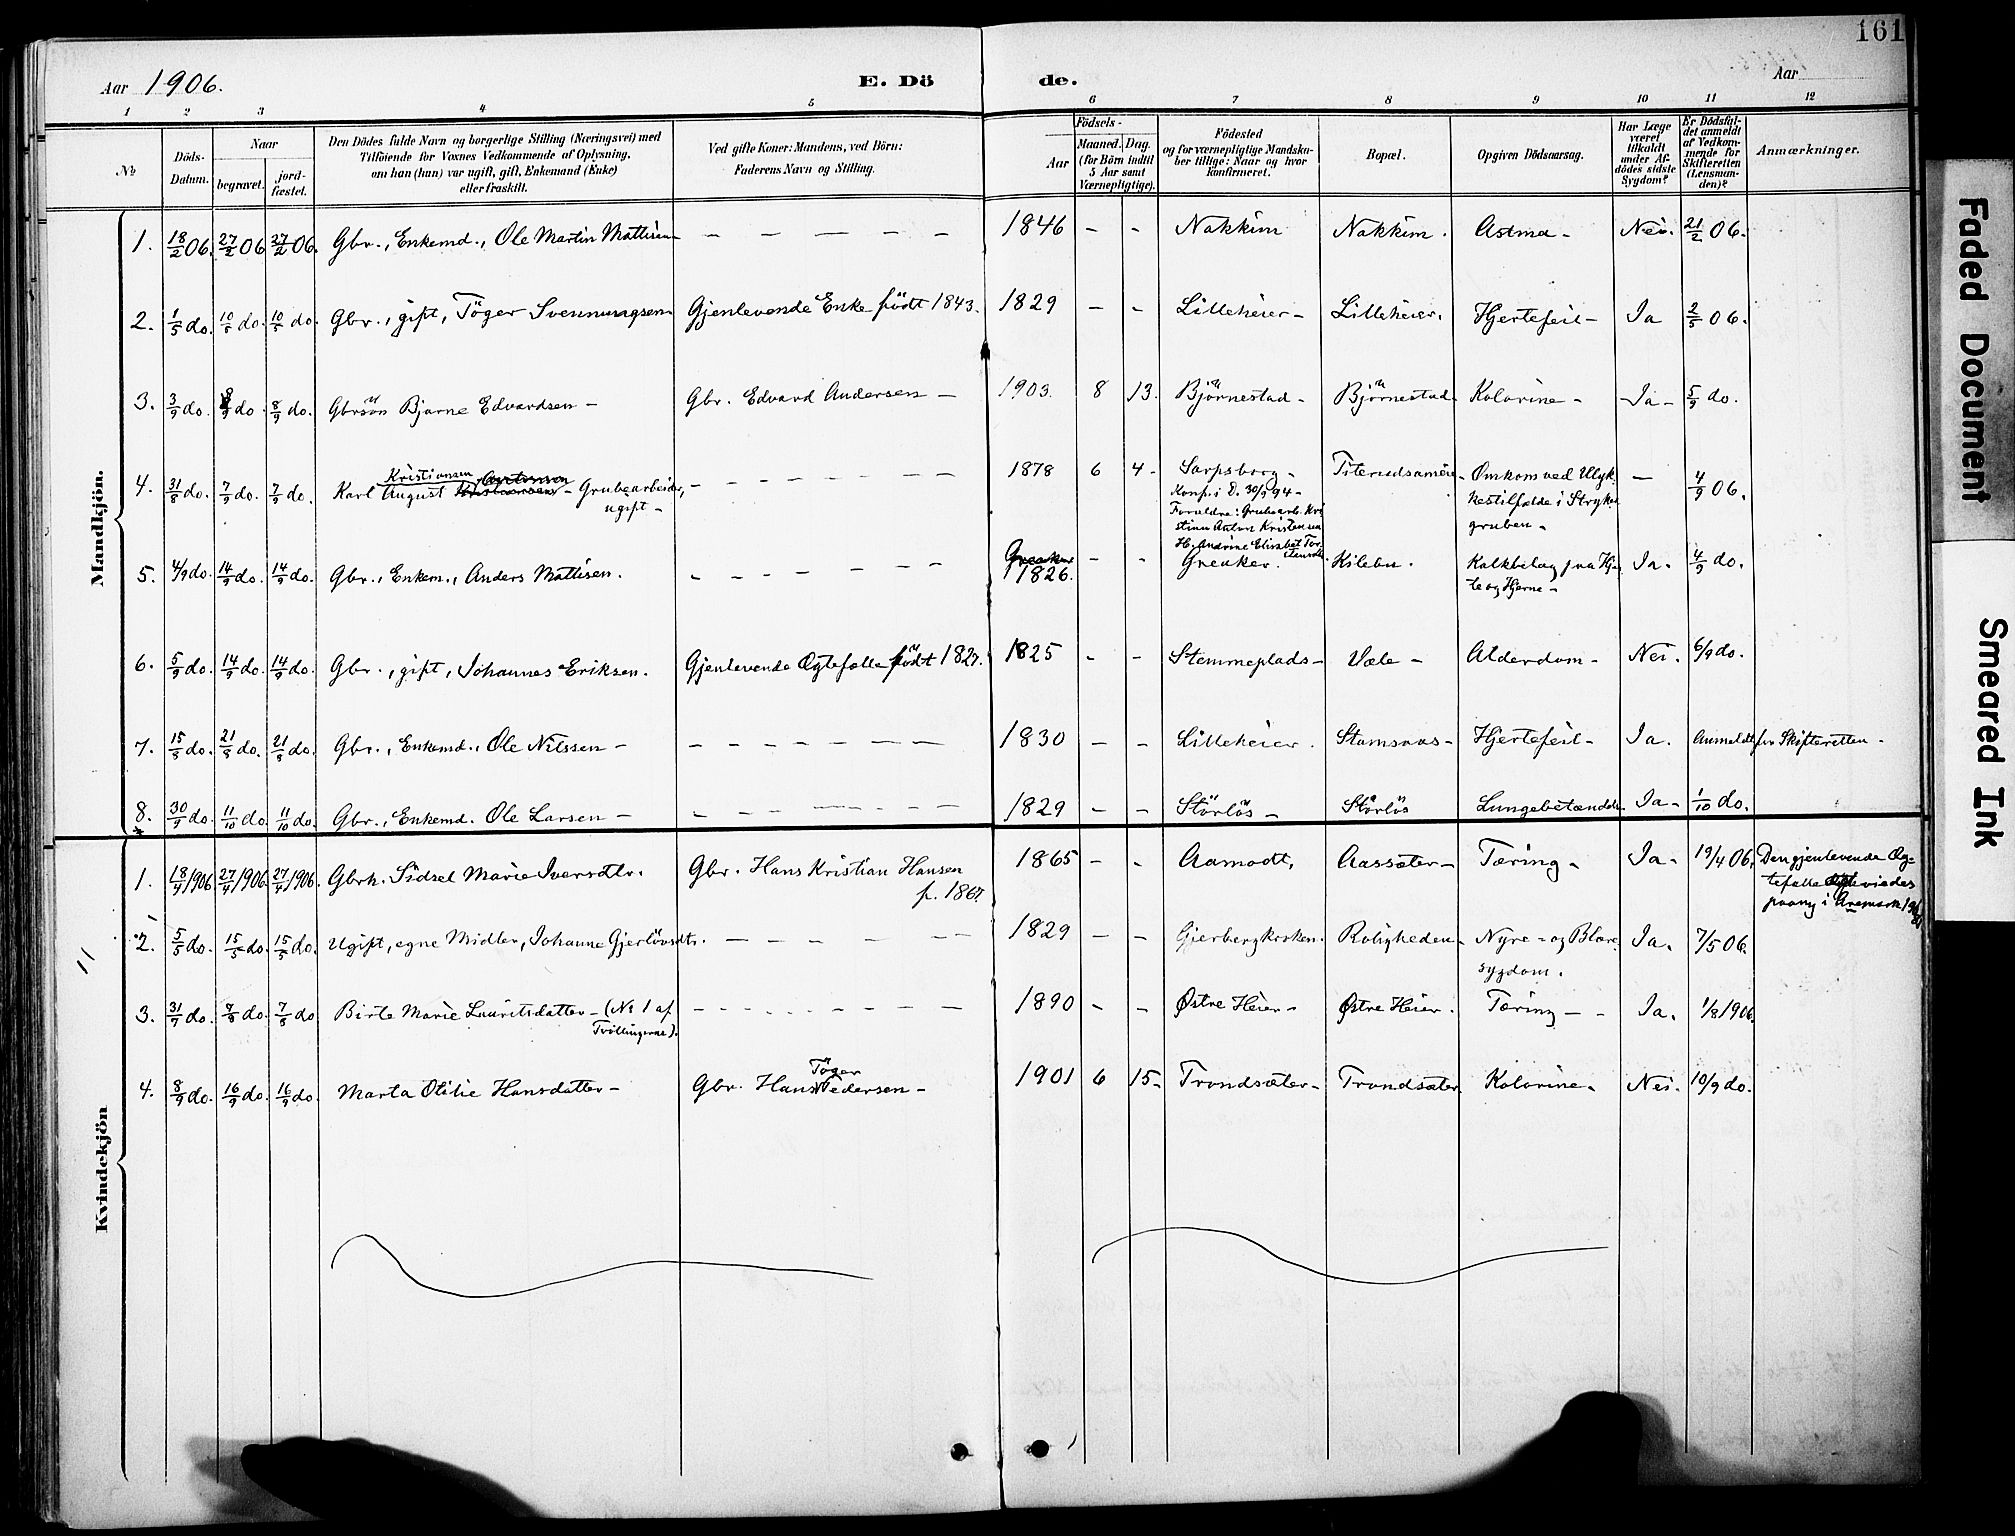 161
Aar 1906. E. Dö de. Aar
1 2 3 4 5 6 7 8 9 10 11 12
№
Döds-Datum.
Naar
begravet.
jord-fæstet.
Den Dödes fulde Navn og borgerlige Stilling (Næringsvei) med
Tilföiende for Voxnes Vedkommende af Oplysning,
om han (hun) var ugift, gift, Enkemand (Enke)
eller fraskilt.
Ved gifte Koner: Mandens, ved Börn:
Faderens Navn og Stilling.
Födsels-
Aar
Maaned. Dag.
(for Börn indtil
5 Aar samt
Værnepligtige).
Födested
og for værnepligtige Mandska-
ber tillige: Naar og hvor
konfirmeret.
Bopæl.
Opgiven Dödsaarsag.
Har Læge
været
tilkaldt
under Af-
dödes sidste
Sygdom?
Er Dödsfal-
det anmeldt
af Vedkom-
mende for
Skifteretten
(Lensman-
den)?
Anmærkninger.
Mandkjön.
1. 18/2 06. 27/2 06 27/2 06. Gbr., Enkemd., Ole Martin Mattisen – – – – – 1846 - - Nakkim Nakkim. Astma - Nei. 21/2 06.
2. 1/5 do. 10/5 do. 10/5 do. Gbr., gift, Töger Svennungsen Gjenlevende Enke födt 1843. 1829 - - Lilleheier - Lilleheier. Hjertefeil - Ja 2/5 06.
3. 3/9 do. 8/9 do. 8/9 do. Gbrsön Bjarne Edvardsen - Gbr. Edvard Andersen - 1903. 8 13. Björnestad - Björnestad Kolorine - Ja - 5/9 do.
4. 31/8 do. 7/9 do. 7/9 do. Karl August Kristiansen - Grubearbeider,
ugift - 1878 6 4. Sarpsborg -
Konf. i 30/9 94 -
Forældre: Grubearb. Kri
stian Anton Kristensen
H. Andrine Elisabet Tor
Omkom ved Ulyk-
kestilfælde i
gruben - – 4/9 06.
5. 4/9 do. 14/9 do. 14/9 do. Gbr., Enkem., Anders Mattisen. Greaker 1826. - - Greaker. Kilebu. Kalkbelag paa Hjer
te og Hjerne - Ja. 4/9 do.
6. 5/9 do. 14/9 do. 14/9 do. Gbr., gift, Johannes Eriksen. Gjenlevende Ægtefælle födt 1827. 1825 - - Stemmeplads - Væle - Alderdom - Nei. 6/9 do.
7. 15/8 do. 21/8 do. 21/8 do. Gbr., Enkemd., Ole Nilssen - 1830 - - Lilleheier. Stamsaas - Hjertefeil - Ja. Anmeldt for Skifteretten -
8. 30/9 do. 11/10 do. 11/10 do. Gbr., Enkemd. Ole Larsen - 1829 - - Störlös - Störlös Lungebetændels Ja - 1/10 do.
Kvindekjön
1. 18/4 1906 27/4 1906 27/4 1906. Gbrk. Sidsel Marie Iversdtr. Gbr. Hans Kristian Hansen
f. 1867. 1865 - - Aamodt, Aassæter - Tæring - Ja - 19/4 06. Den gjenlevende Æg-
tefælle viedes
paany i Aremark
2. 5/5 do. 15/5 do. 15/5 do. Ugift, egne Midler, Johanne Gjerlövsdtr. 1829 - - Gjerbergkroken. Roligheden - Nyre- og Blære
sygdom. Ja. 7/5 06.
3. 31/7 do. 7/8 do. 7/8 do Birte Marie Lauritsdatter - (No 1 af
Tvillingerne). 1890 - - Østre Heier - Østre Heier. Tæring - - Ja. 1/8 1906.
4. 8/9 do. 16/9 do. 16/9 do. Marta Otilie Hansdatter - Gbr. Hans Töger Pedersen - 1901 6 15 - Trondsæter - Trondsæter Kolorine - Nei. 10/9 do.
Faded Document
Smeared Ink